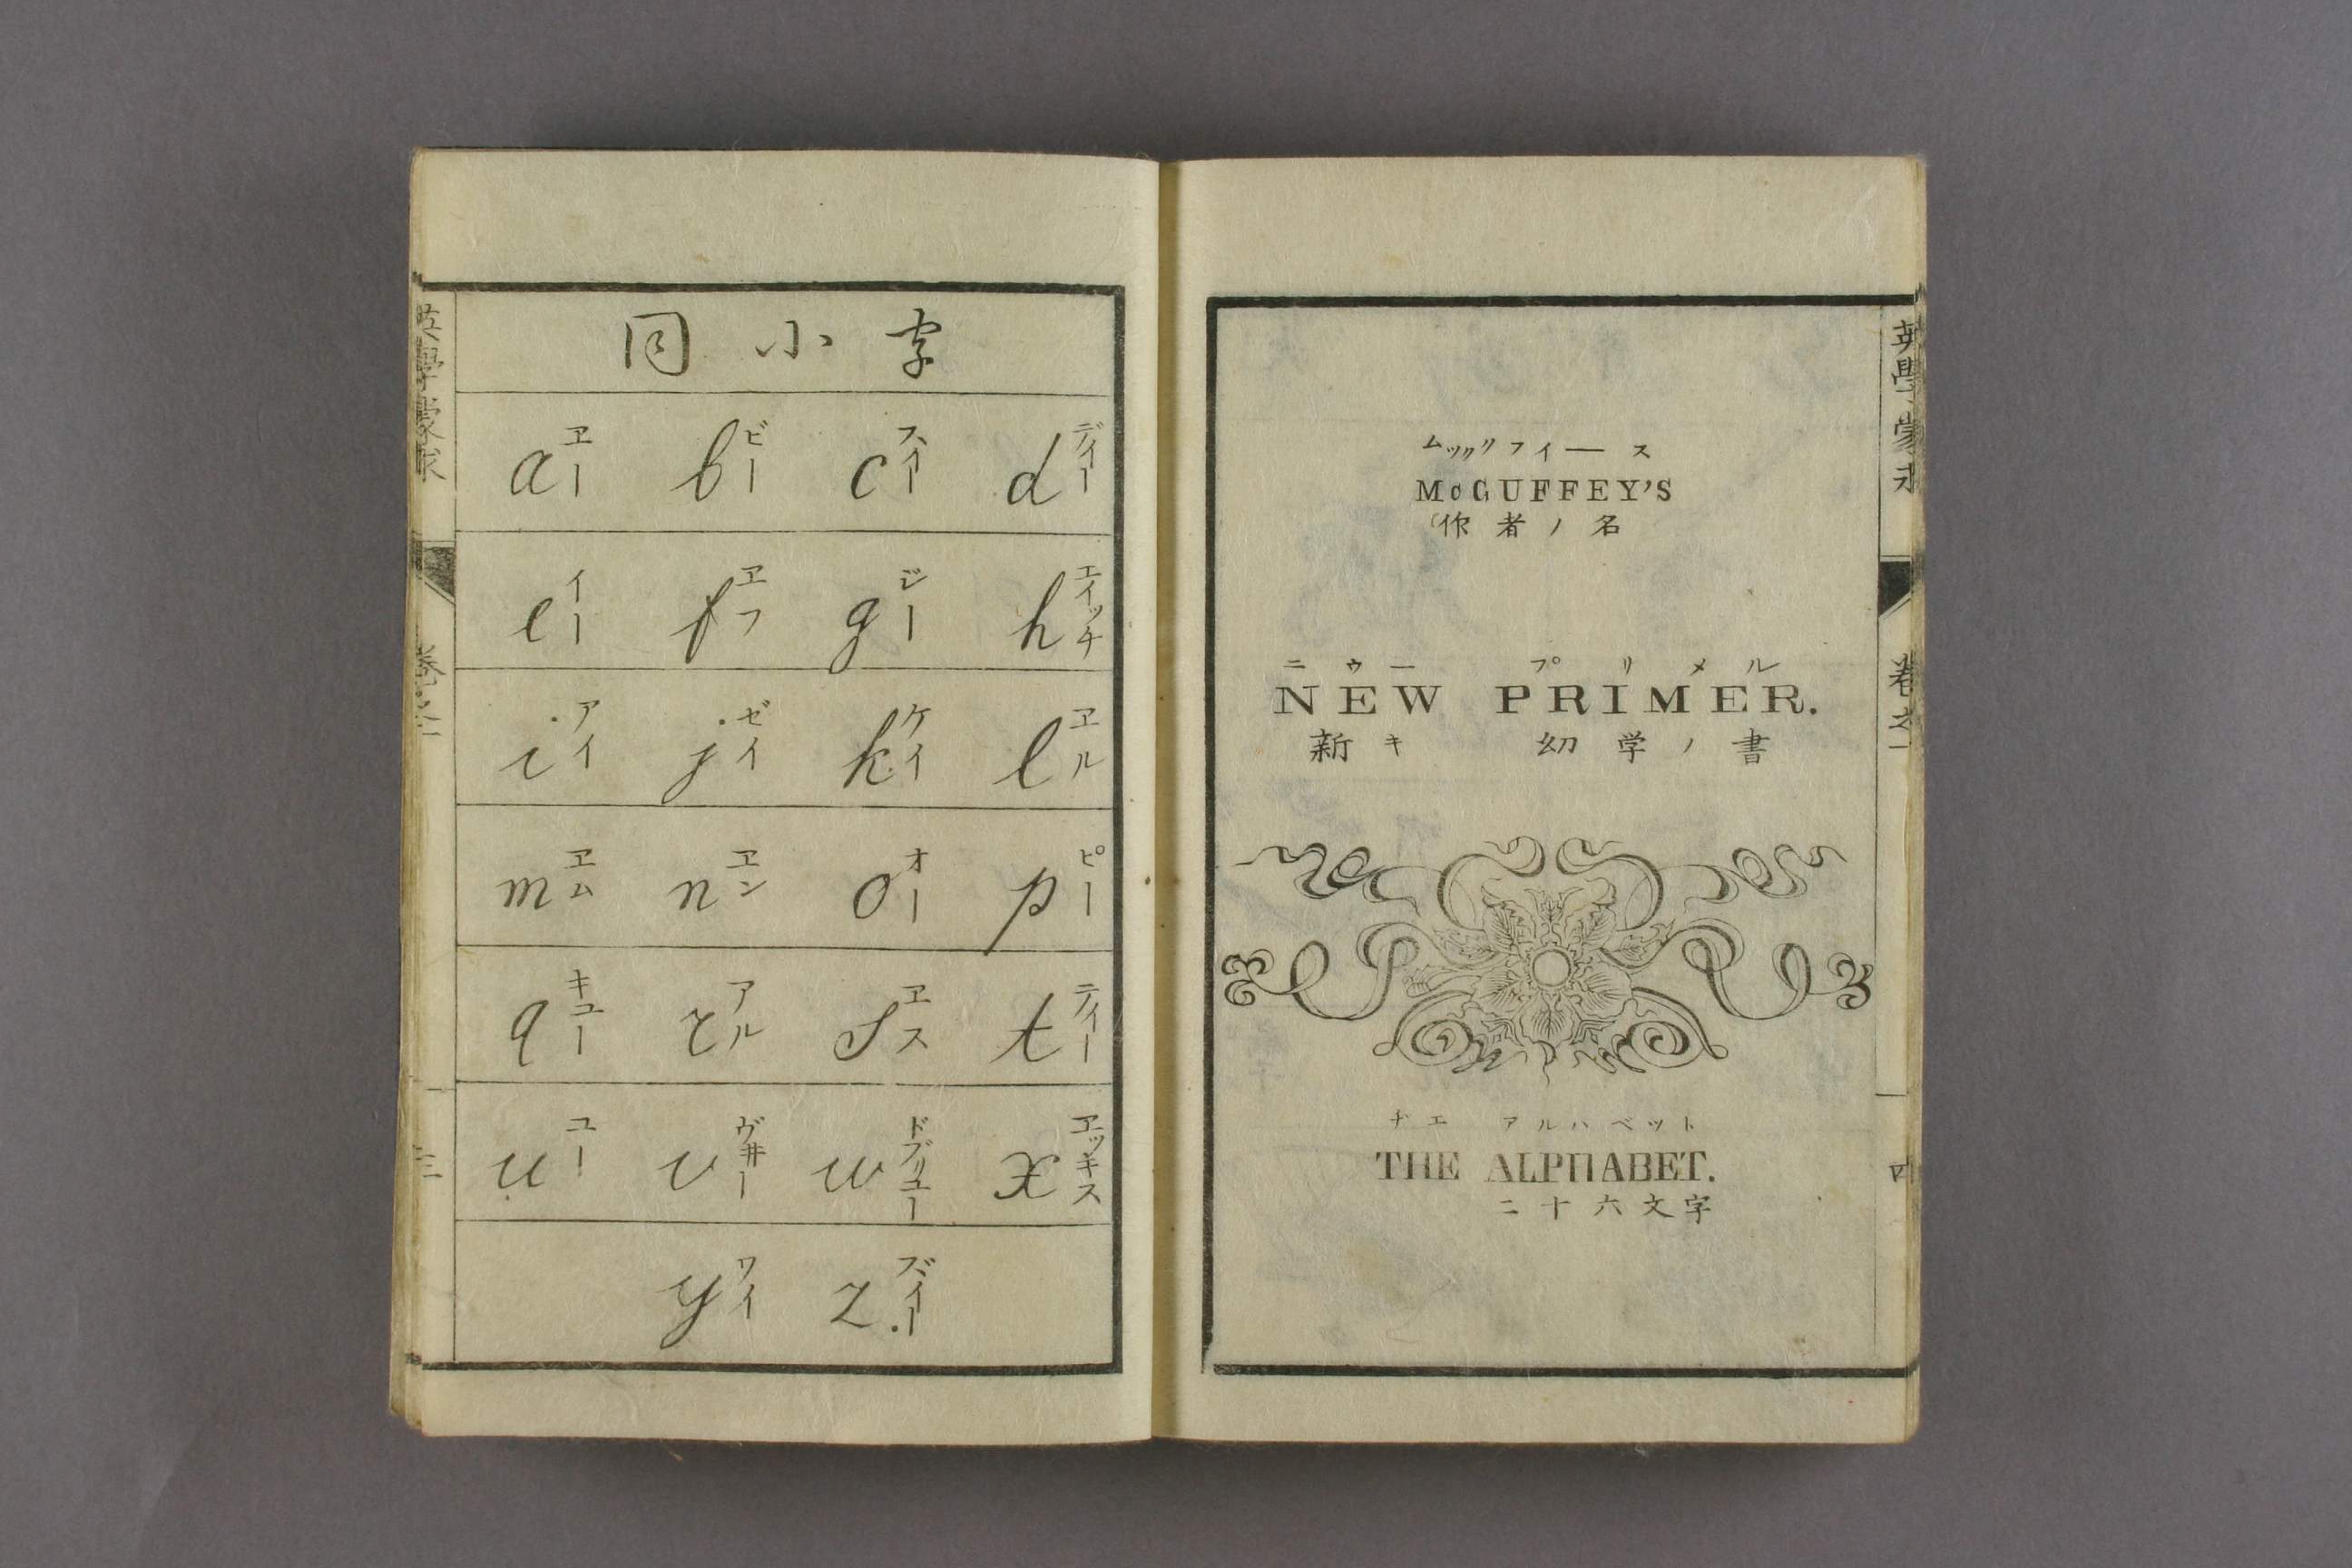 同小字
a エー b ビー c スイー d デイー
e イー f エフ g ジー h エイッチ
i アイ j ゼイ k ケイ l エル
m エム n エン o オー p ピー
q キユー r アル s エス t テイー
u ユー v ヴ井ー w ドブリユー x エッキス
y ワイ z ズイー
英學蒙求
卷之一
三
ムックグフイース
McGUFFEY'S
作者ノ名
ニウー プリメル
NEW PRIMER.
新キ 幼学ノ書
エ アルハベット
THE ALPHABET.
二十六文字
英學蒙求
卷之一
四